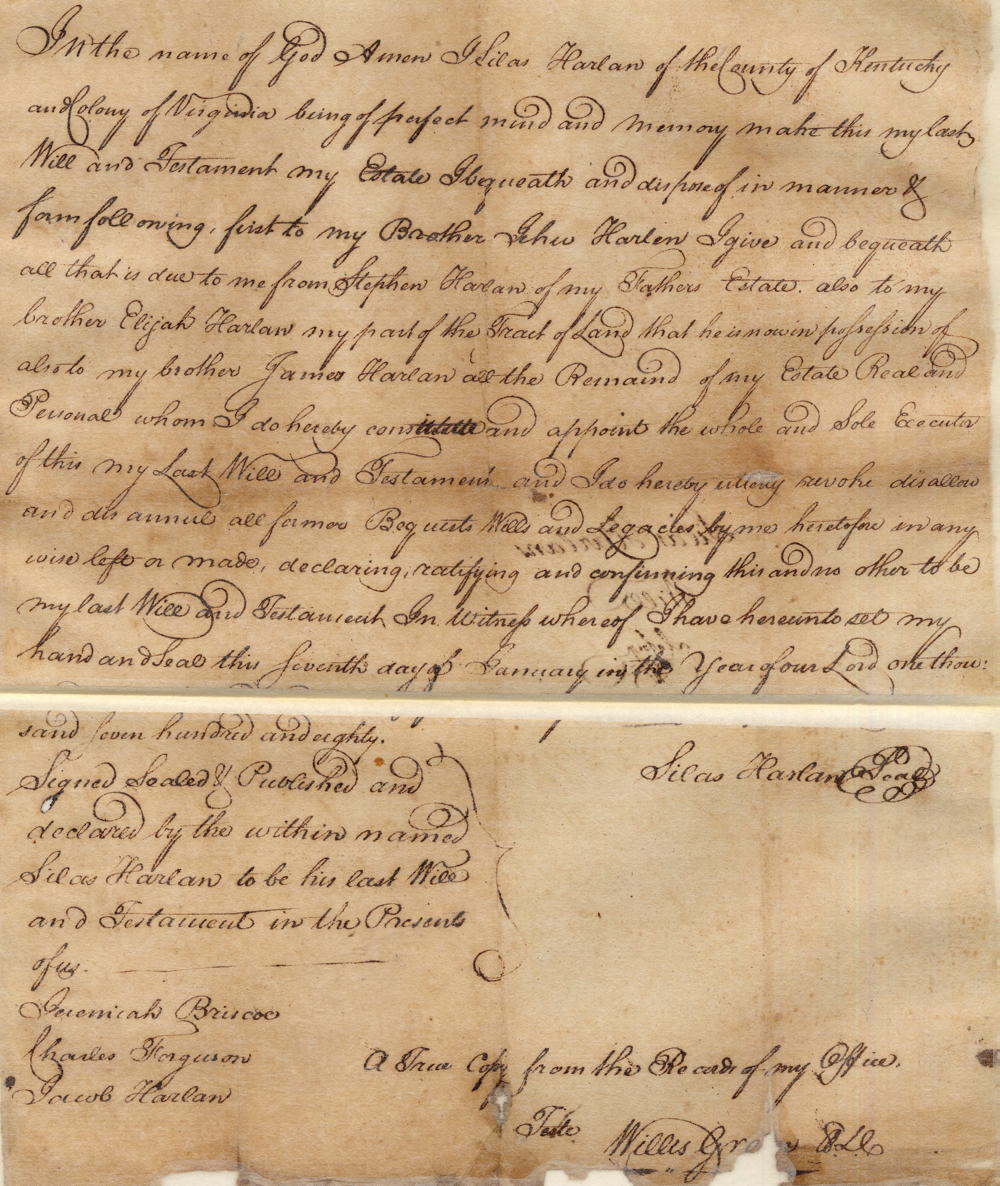 In the name of God Amen I Silas Harlan of the County of Kentucky
and Colony of Virginia being of perfect mind and memory make this my last
Will and Testament my Estate I bequeath and dispose of in manner &
form following, first to my Brother Jehu Harlen I give and bequeath
all that is due to me from Stephen Harlan of my Fathers Estate. also to my
brother Elijah Harlan my part of the Tract of Land that he is now in possession of
also to my brother James Harlan all the Remaind of my Estate Real and
Personal whom I do hereby constitute and appoint the whole and Sole Executor
of this my Last Will and Testament and I do hereby utterly revoke disallow
and disannul all former Bequests Wills and Legacies by me heretofore in any
wise left or made, declaring, ratifying and confirming this and no other to be
my last Will and Testament In Witness whereof I have hereunto set my
hand and Seal this Seventh day of January in the Year of our Lord one thou:
sand seven hundred and eighty.
Signed Sealed & Published and
declared by the within named
Silas Harlan to be his last Will
and Testament in the Presents
of us.
Silas Harlan Seal
Jeremiah Briscoe
Charles Ferguson
Jacob Harlan
A True Copy from the Records of my Office.
Teste
Willis